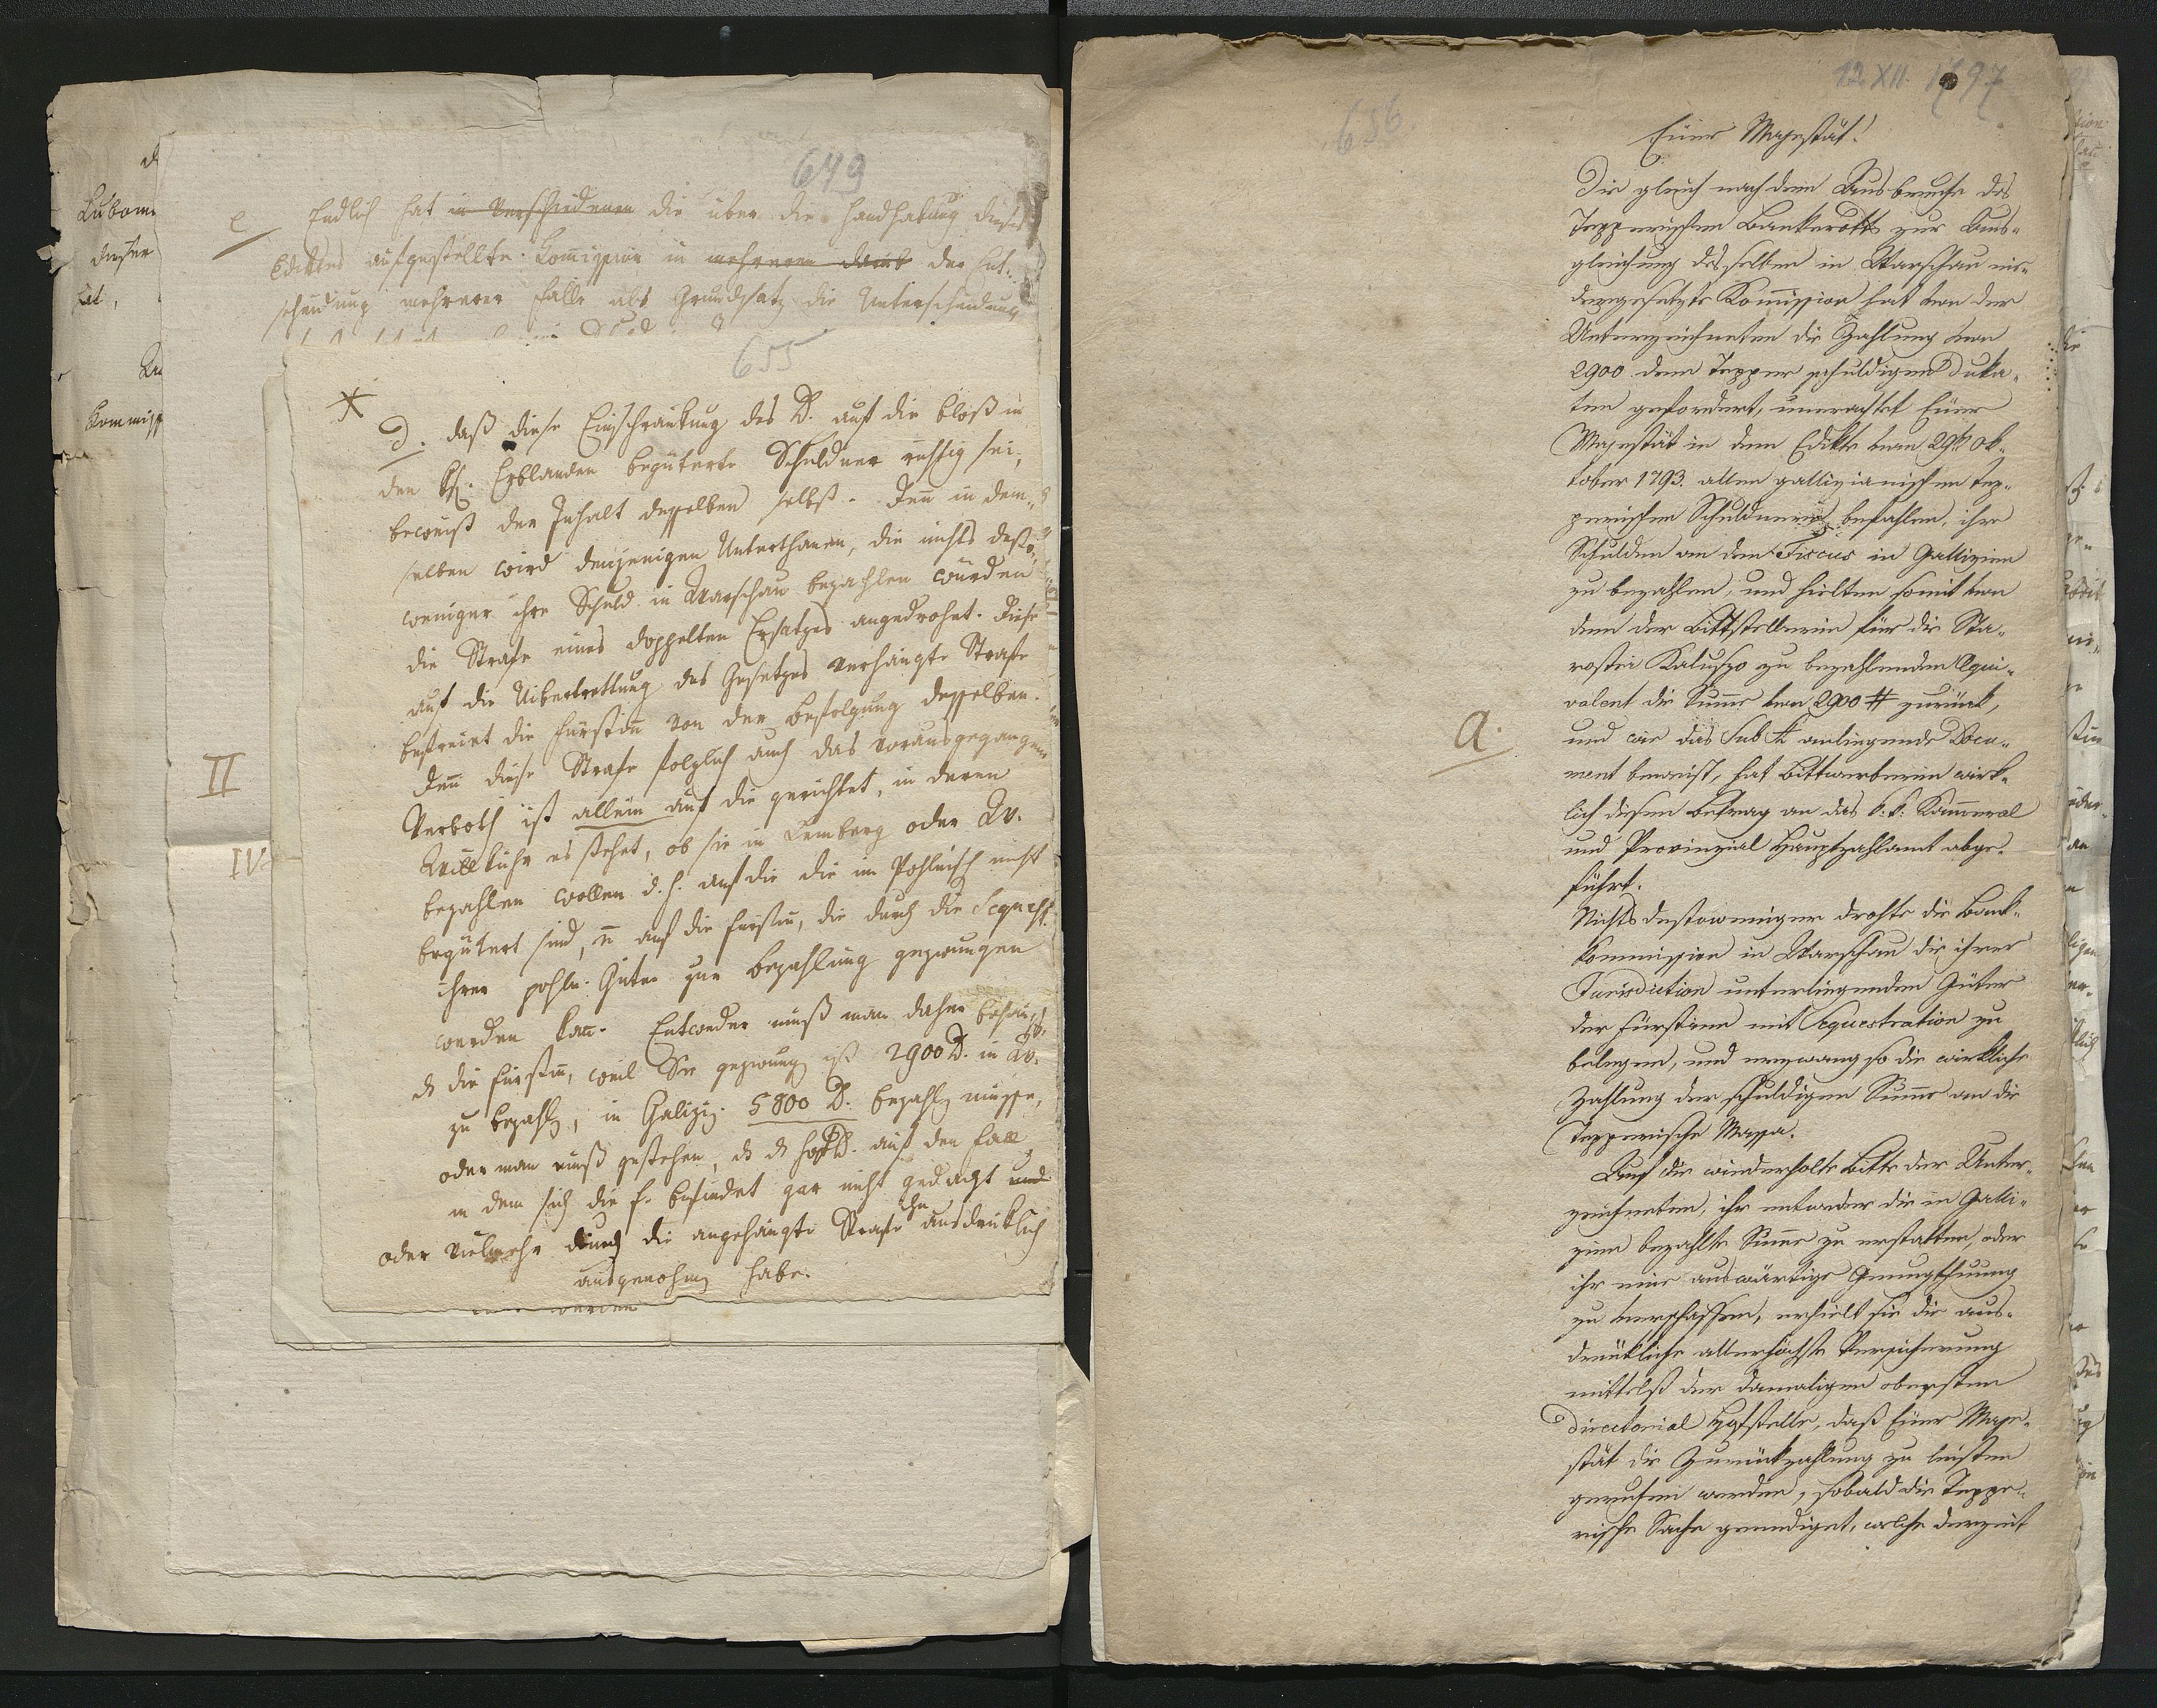 649
e
Endlich hat in verschiedenen die über die Handhabung dieses
Ediktes aufgestellte Kommission in mehreren der Ent-
scheidung mehrerer Fälle als Grundsatz die Unterscheidung
Lubom
dieser
hat,
Kommiss
II
IV
655
d. daß diese Einschränkung des D. auf die bloß in
den kk. Erblanden begüterte Schuldner richtig sei,
beweist der Inhalt desselben selbst. Denn in dem-
selben wird denjenigen Unterthanen, die nichts desto
weniger ihre Schuld in Warschau bezahlen würden
die Strafe eines doppelten Ersatzes angedrohet. Diese
auf die Uibertrettung des Gesetzes verhängte Strafe
befreiet die Fürstin von der Befolgung desselben.
Denn diese Strafe folglich auch das vorausgegangene
Verboth ist allein auf die gerichtet, in deren
Willkühr es stehet, ob sie in Lemberg oder W.
bezahlen wollen d. h. auf die die im Pohlnisch nicht
begütert sind, n auf die Fürstin, die durch die Sequestr.
ihrer pohln. Güter zur Bezahlung gezwungen
werden kan. Entweder muß man daher behaupt.
die Fürstin, weil Sie gezwung ist 2900 D. in W.
zu bezahlen, in Galizien 5800 D. bezahlen müsse,
oder man muß gestehen, auf den Fall
in dem sich die F. befindet gar nicht gedacht und
oder vielmehr durch die angehängte Strafe ihn ausdrücklich
ausgenohmen habe.
12 XII. 1797
656
Euer Majestät!
Die gleich nach dem Ausbruche des
Tepperischen Bankerotts zur Aus-
gleichung desselben in Warschau nie-
dergesetzte Kommission hat von der
Unterzeichneten die Zahlung von
2900 dem Tepper schuldigen Duka-
ten gefordert, unerachtet Euer
Majestät in dem Edikte vom 29ten Ok-
tober 1793. allen gallizianischen Tep-
perischen Schuldnern befahlen, ihre
Schulden an den Fiscus in Gallizien
zu bezahlen, und hielten somit von
dem der Bittstellerin für die Sta-
rostei Kalusz zu bezahlenden Aequi-
valent die Summe von 2900 # zurück,
a.
und wie das Sub A anliegende Docu-
ment beweist, hat Bittwerberin wirk-
lich diesen Betrag an das k. k. Kammeral
und Provinzial Hauptzahlamt abge-
führt.
Nichts destoweniger drohte die Bank-
kommission in Warschau die ihrer
Jurisdiction unterliegenden Güter
der Fürstinn mit Sequestration zu
belegen, und erzwang so die wirkliche
Zahlung der schuldigen Summe an die
Tepperische Massa.
Auf die wiederholte Bitte der Unter-
zeichneten, ihr entweder die in Galli-
zien bezahlte Summe zu erstatten, oder
ihr eine auswärtige Genugthuung
zu verschaffen, erhielt sie die aus-
drückliche allerhöchste Versicherung
mittelst der damaligen obersten
Directorial Hofstelle, daß Euer Maje-
stät die Zurückzahlung zu leisten
geruhen werden, sobald die Teppe-
rische Sache geendiget, welche derzeit